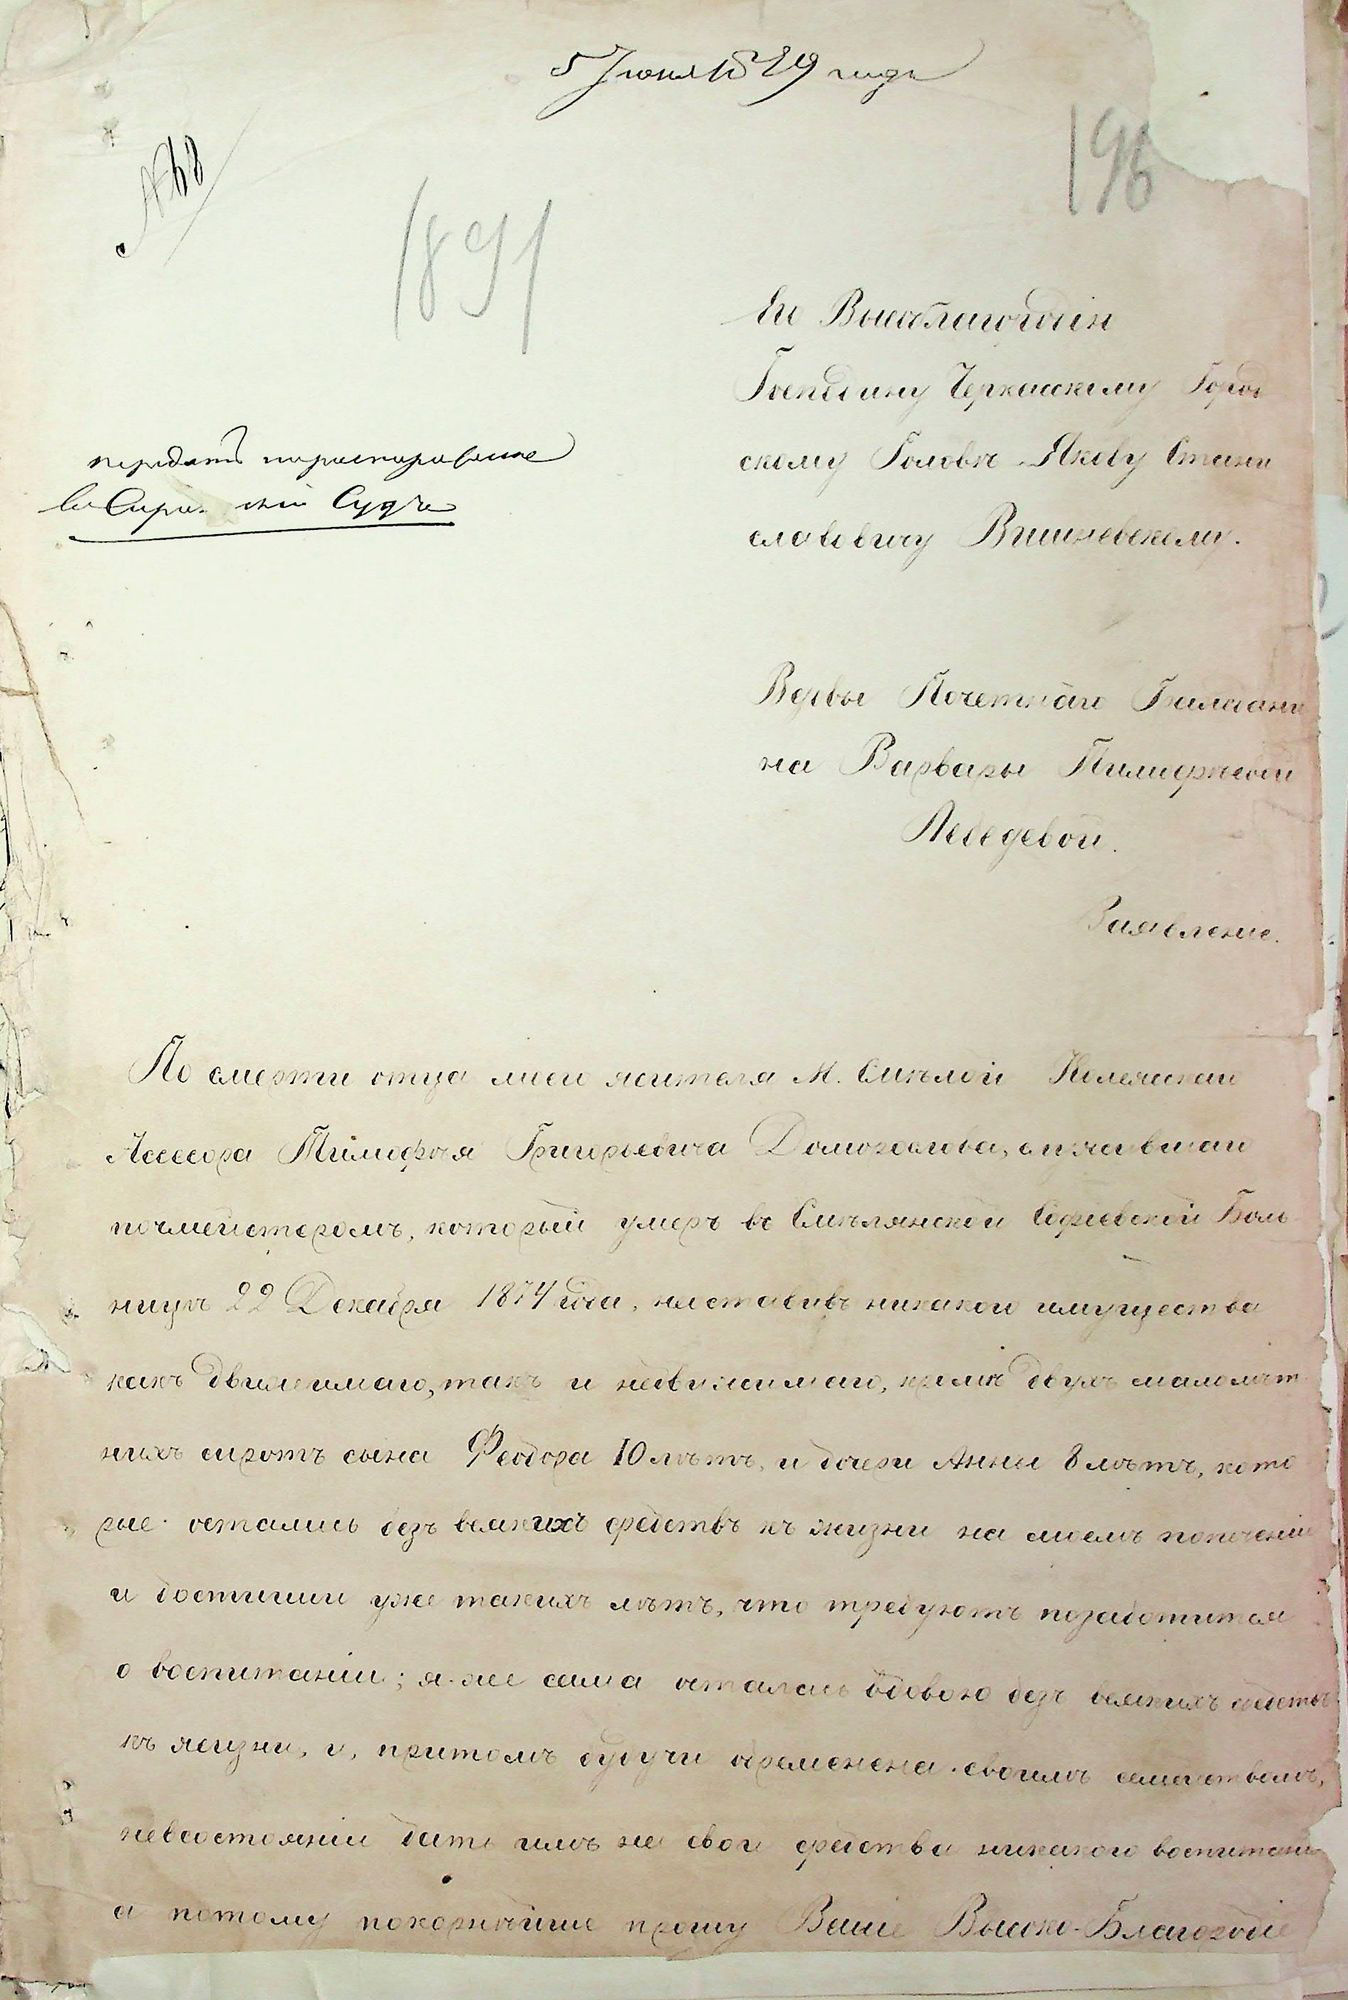 5 Іюня 1879 года
№ 68
196
1891
Его Высоблагородію
Господину Черкасскому Город
скому Головѣ Якову Стани
славовичу Вишневскому.
передать на распоряжение
въ Сирот скій Судъ
Вдовы Почетнаго Гражданi
на Варвары Тимофѣевой
Лебедевой.
Заявленіе.
По смерти отца моего жителя М. Смѣлой Колежскаго
Ассесора Тимофѣя Григорьевича Доморослова, служившаго
почмейстеромъ, который умеръ въ Смѣлянской Софіевской Боль
ницѣ 22 Декабря 1874 года, неоставивъ никакого имущества
какъ движимаго, такъ и недвижимаго, кромѣ двухъ малолѣт
нихъ сиротъ сына Феодора 10 лѣтъ, и дочери Анны 8 лѣтъ, кото
рые остались безъ всякихъ средствъ къ жизни на моемъ попеченіи
и достигши уже такихъ лѣтъ, что требуютъ позаботится
о воспитаніи; я же сама осталась вдовою безъ всякихъ средствъ
къ жизни, и, притомъ будучи обременена своимъ семействомъ,
невсостояніи дать имъ на свои средства никакого воспитанія
а потому покорнѣйше прошу Ваше Высоко-Благородіе